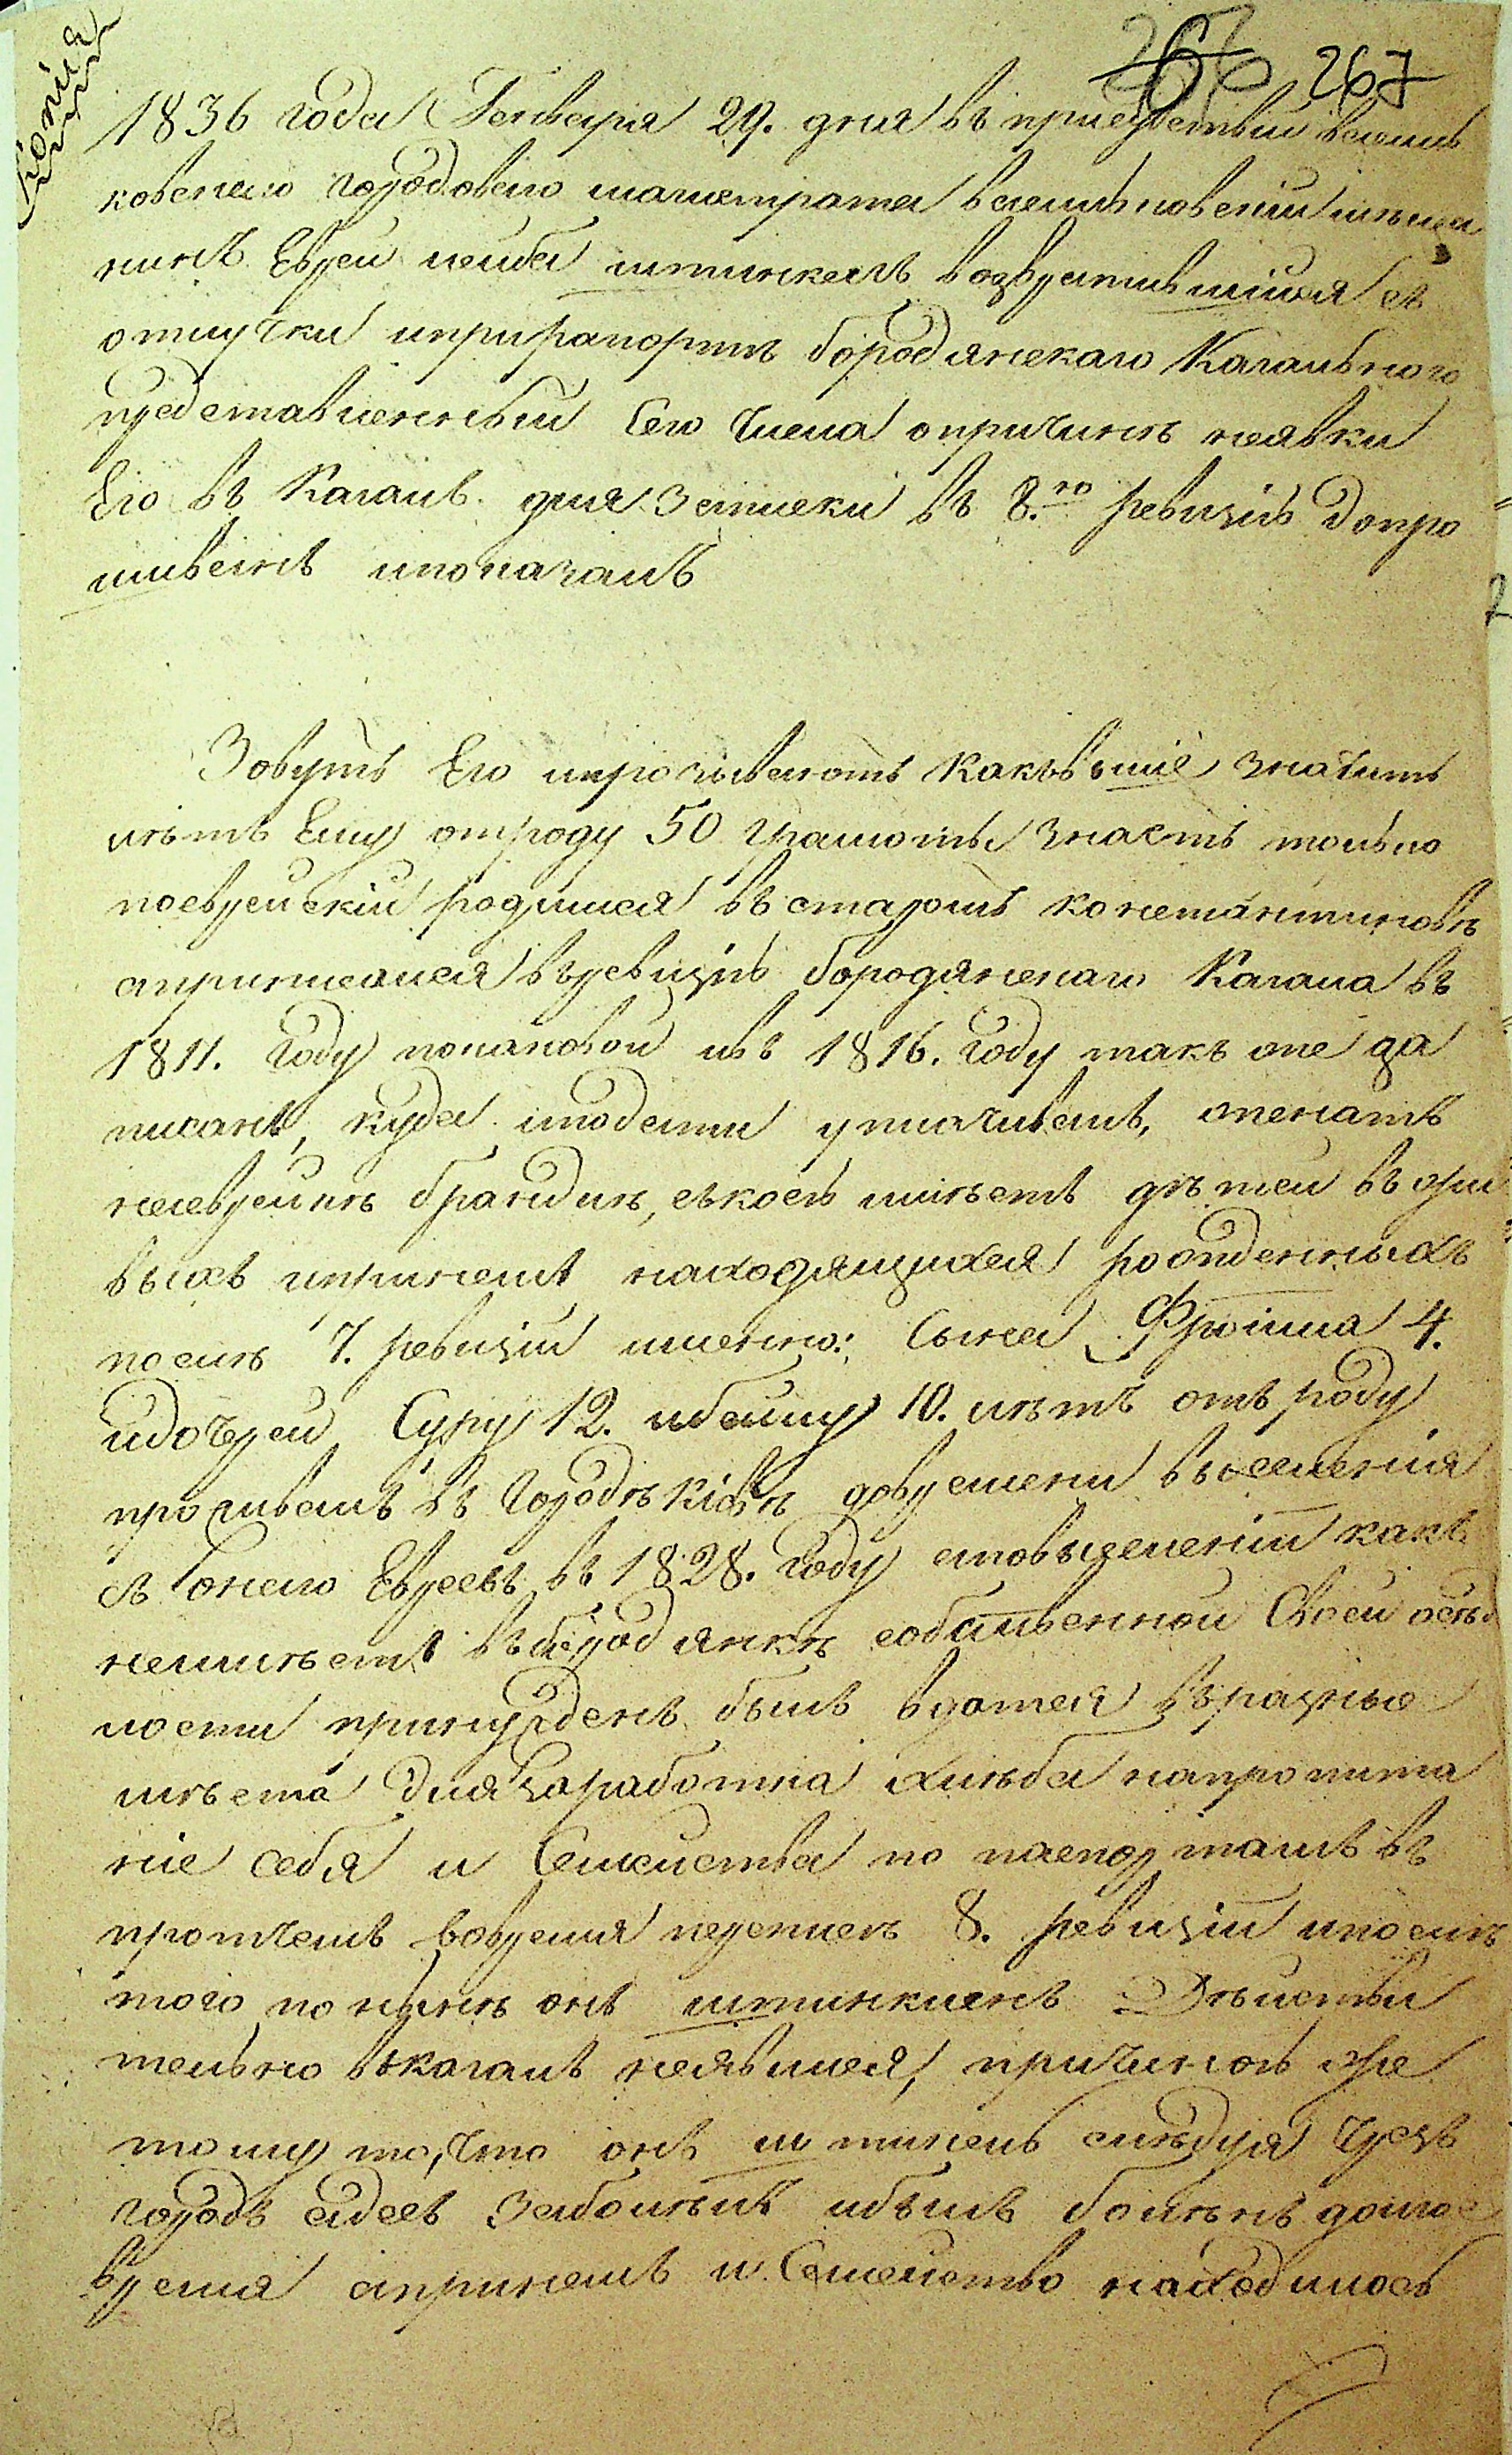 Копія
267 267
1836 года Генваря 29. дня въ присудствіи василь
ковскаго городоваго магистрата васильковскій мѣща
нинъ Еврей лейба штинкелъ возвратившійся съ
отлучки ипри рапортѣ бородянскаго Кагального
представленный Его Члена опричинѣ неявки
Его въ Кагалъ для Записки въ 8.ю ревизію допро
шиванъ ипоказалъ
Зовутъ Его ипрозываютъ какъвыше значитъ
лѣтъ Ему отроду 50 грамоты знаетъ только
поеврейскій родился въ старомъ константиновѣ
априписался въревизію бородянскаго Кагала въ
1811. Году покаковой ивъ 1816. Году такъ оне за
писанъ, куда иподати уплачивалъ, оженатъ
наеврейкѣ брандлѣ, съкоей имѣетъ дѣтей въ жи
выхъ ипринемъ находящихся рожденныхъ
послѣ 7. ревизіи имянно: Сына Фроима 4.
идочерей Суру 12. ибейлу 10. лѣтъ отъ роду
проживалъ въ Городѣ кіевѣ довремени выселенія
съ Оного Евреевъ въ 1828. Году аповыселеніи какъ
неимѣетъ въбородянкѣ собственной Своей осѣд
лости принужденъ былъ вдатся въразные
мѣста для заработка хлѣба напропита
ніе себя и Семейства по паспортамъ въ
протчемъ вовремя переписѣ 8. ревизіи ипослѣ
того понынѣ онъ штинкиль Дѣйстви
тельно вкагалъ неявился, причиною же
тому то, что онъ штинкель слѣдуя Чрезъ
городъ одессъ Заболѣлъ ибылъ боленъ долгое
время апринемъ и Семейство находилось